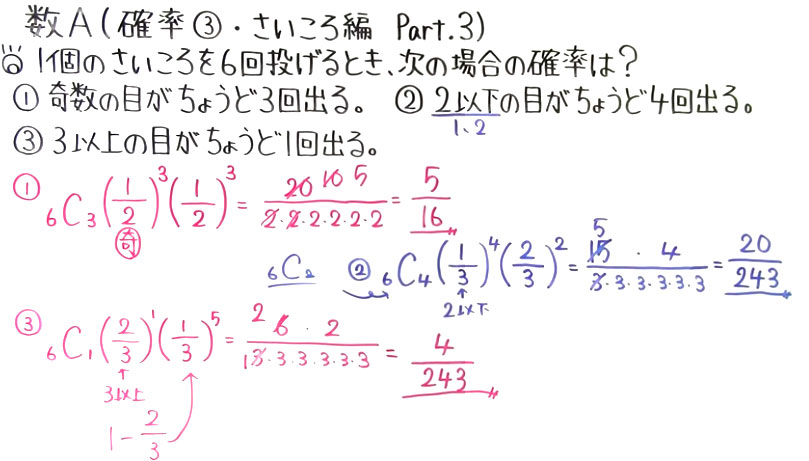 数A(確率③・さいころ編 Part.3)
1個のさいころを6回投げるとき、次の場合の確率は?
① 奇数の目がちょうど3回出る。 ② 2以下の目がちょうど4回出る。
1、2
③ 3以上の目がちょうど1回出る。
① ₆C₃(1/2)³(1/2)³ = 20 10 5/2・2・2・2・2・2 = 5/16
奇
₆C₂ ② ₆C₄(1/3)⁴(2/3)² = 5 15・4/3・3・3・3・3・3 = 20/243
2以下
③ ₆C₁(2/3)¹(1/3)⁵ = 2 6・2/1 3・3・3・3・3・3 = 4/243
3以上
1-2/3